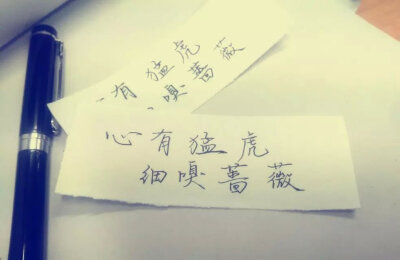 有猛虎
嗅蔷薇
心有猛虎
细嗅蔷薇